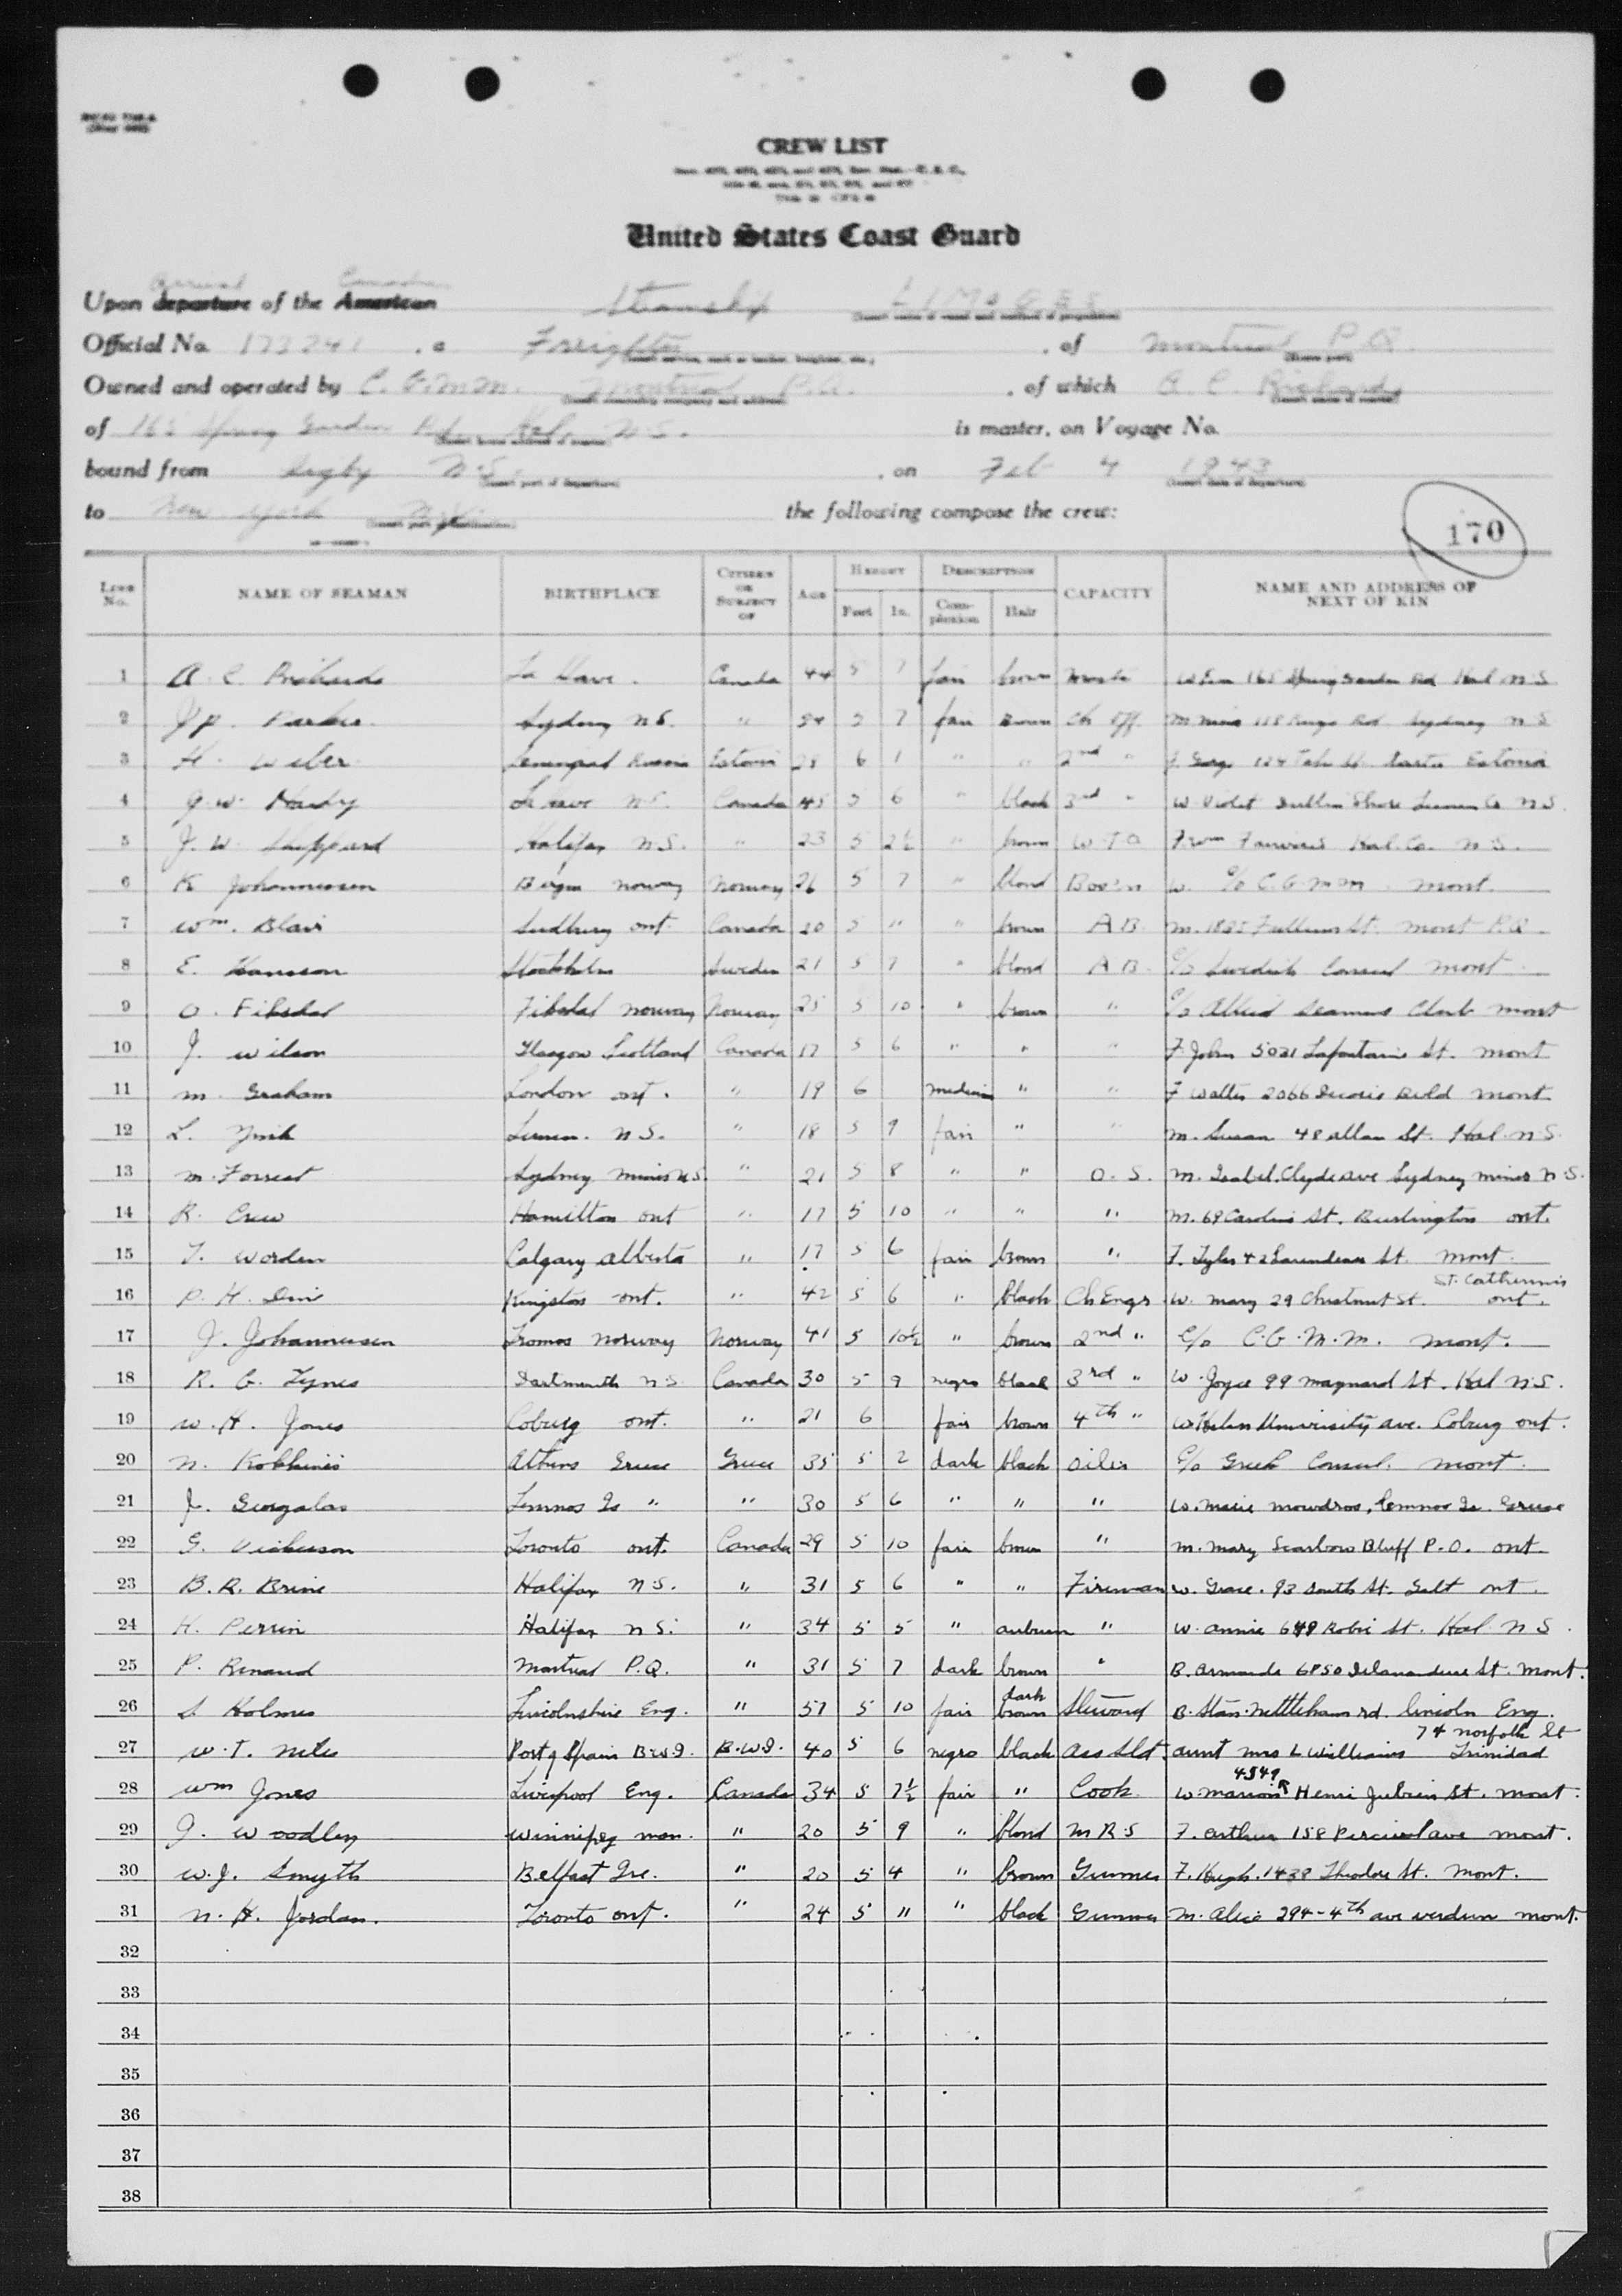 CREW LIST
United States Coast Guard
Arrival Canadian
Upon departure of the American Steamship LIMOGES
Official No. 173241 , a Freighter , of Montreal P.Q.
Owned and operated by C.G.M.M. Montreal P.Q. , of which A. C. Richards
of Spring Garden Rd. Hal. N.S. is master, on Voyage No.
bound from Digby N.S. , on Feb 4 1943
to New York N.Y. the following compose the crew:
170
Line No. NAME OF SEAMAN BIRTHPLACE CITIZEN OR SUBJECT OF AGE HEIGHT Feet In. DESCRIPTION Complexion Hair CAPACITY NAME AND ADDRESS OF NEXT OF KIN
1 A. C. Richards La Have. Canada 44 5 7 fair brown Spring Garden Rd Hal N.S
2 J.P. Parker Sydney N.S. " 5 7 fair Brown Ch Off. Kings Rd Sydney N.S
3 H. Weber Leningrad Russia Estonia 28 6 1 " " 2nd " Estonia
4 G.W. Hardy LaHave N.S. Canada 45 5 6 " black 3rd " W Violet Dublin Shore Lunen Co N.S.
5 J. W. Sheppard Halifax N.S. " 23 5 2½ " brown W T O Hal. Co. N.S.
6 K Johannessen Bergen Norway Norway 26 5 7 " blond Bos'n W. c/o C.G.M.M. Mont.
7 Wm. Blair Sudbury Ont. Canada 20 5 11 " brown A B. M. 1825 Fullum St. Mont P.Q.
8 E. Hansson Stockholm Sweden 21 5 7 " blond A B. c/o Swedish Consul Mont
9 O. Fiksdal Fiksdal Norway Norway 25 5 10 " brown " c/o Allied Seamens Club Mont
10 J. Wilson Glasgow Scotland Canada 17 5 6 " " " F. John 5021 Lafontaine St. Mont
11 M. Graham London Ont. " 19 6 medium " " F Walter 2066 Decarie Bvld Mont
12 L. Zinck Lunen. N.S. " 18 5 9 fair " " M. Susan 48 Allan St. Hal. N.S.
13 M. Forrest Sydney Mines N.S. " 21 5 8 " " O. S. M. Isabel. Clyde Ave Sydney Mines N.S.
14 R. Crew Hamilton Ont " 17 5 10 " " " M. 69 Caroline St. Burlington Ont.
15 T. Worden Calgary Alberta " 17 5 6 fair brown " F. Tyler St. Mont.
16 P. H. Kingston Ont. " 42 5 6 " black Ch Engr W. Mary 29 Chestnut St. St. Catherines Ont.
17 J. Johannessen Tromso Norway Norway 41 5 10½ " brown 2nd " c/o C.G.M.M. Mont.
18 R. G. Tynes Dartmouth N.S. Canada 30 5 9 negro black 3rd " W. Joyce 99 Maynard St. Hal N.S.
19 W. H. Jones Coburg Ont. " 21 6 fair brown 4th " W Helen University Ave. Coburg Ont.
20 N. Kokkinis Athens Greece Greece 35 5 2 dark black Oiler c/o Greek Consul. Mont.
21 J. Georgalas Lemnos Is " " 30 5 6 " " " W. Marie Mowdros, Lemnos Is. Greece
22 G. Dickerson Toronto Ont. Canada 29 5 10 fair brown " M. Mary Scarboro Bluff P.O. Ont.
23 B. R. Brine Halifax N.S. " 31 5 6 " " Fireman W. Grace. 93 South St. Galt Ont.
24 H. Perrin Halifax N.S. " 34 5 5 " auburn " W. Annie 649 Robie St. Hal. N.S.
25 P. Renaud Montreal P.Q. " 31 5 7 dark brown " B. Armande 6850 St. Mont.
26 S Holmes Lincolnshire Eng. " 57 5 10 fair dark brown Steward B. Stan. Nettleham rd. Lincoln Eng.
27 W. T. Niles Port of Spain B.W.I. B.W.I. 40 5 6 negro black Ass Std. Aunt Mrs L Williams 74 Norfolk St Trinidad
28 Wm Jones Liverpool Eng. Canada 34 5 7½ fair " Cook W. Marion 4549 Henri Julien St. Mont.
29 J. Woodley Winnipeg Man. " 20 5 9 " blond M R S F. Arthur 158 Percival Ave Mont.
30 W. J. Smyth Belfast Ire. " 20 5 4 " brown Gunner F. Hugh. 1438 Theodore St. Mont.
31 N. H. Jordan. Toronto Ont. " 24 5 11 " black Gunner M. Alice 294-4th Ave Verdun Mont.
32
33
34
35
36
37
38